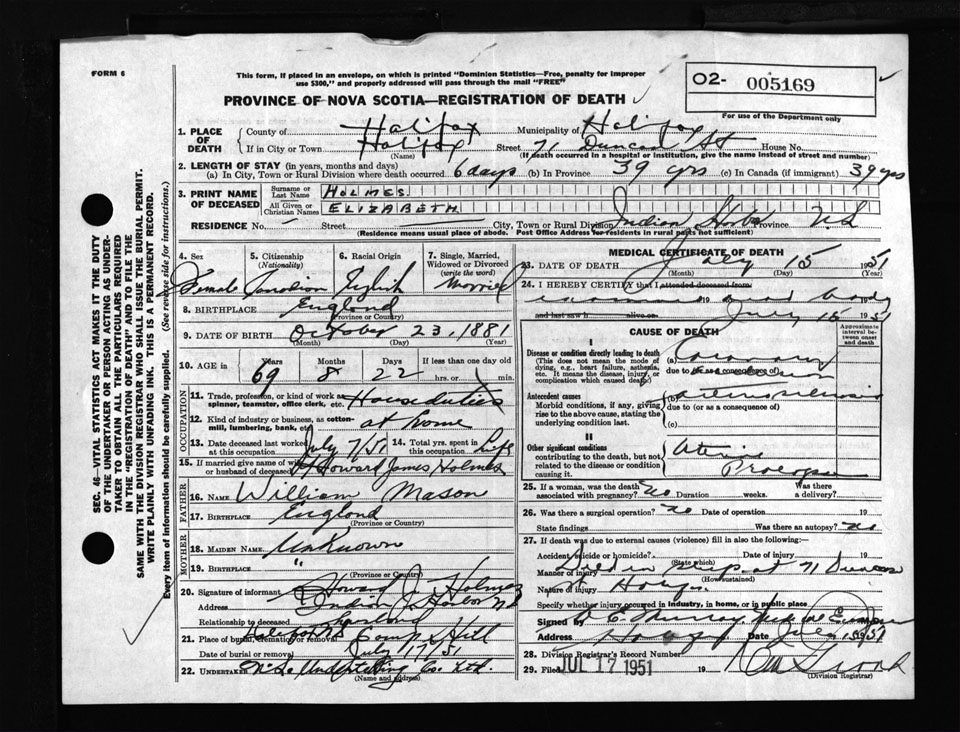 FORM 6
This form, if placed in an envelope, on which is printed "Dominion Statistics—Free, penalty for improper
use $300," and properly addressed will pass through the mail "FREE"
O2- 005169
For use of the Department only
PROVINCE OF NOVA SCOTIA—REGISTRATION OF DEATH
1. PLACE OF DEATH
County of Halifax Municipality of Halifax
If in City or Town Halifax (Name) Street 71 Duncan St House No.
(If death occurred in a hospital or institution, give the name instead of street and number)
2. LENGTH OF STAY (in years, months and days)
(a) In City, Town or Rural Division where death occurred. 6 days (b) In Province 39 yrs (c) In Canada (if immigrant) 39 yrs
3. PRINT NAME OF DECEASED
Surname or Last Name HOLMES.
All Given or Christian Names ELIZABETH
RESIDENCE No. — Street — City, Town or Rural Division Indian Harbor Province N.S.
(Residence means usual place of abode. Post Office Address for residents in rural parts not sufficient)
4. Sex Female
5. Citizenship (Nationality) Canadian
6. Racial Origin English
7. Single, Married, Widowed or Divorced (write the word) Married
8. BIRTHPLACE England
(Province or Country)
9. DATE OF BIRTH October 23, 1881
(Month) (Day) (Year)
10. AGE in Years 69 Months 8 Days 22 If less than one day old hrs. or min.
OCCUPATION
11. Trade, profession, or kind of work as spinner, teamster, office clerk, etc. Houseduties
12. Kind of industry or business, as cotton-mill, lumbering, bank, etc. at home
13. Date deceased last worked at this occupation July 7/51 14. Total yrs. spent in this occupation Life
15. If married give name of wife or husband of deceased Howard James Holmes
FATHER
16. NAME William Mason
17. BIRTHPLACE England
(Province or Country)
MOTHER
18. MAIDEN NAME Unknown
19. BIRTHPLACE "
(Province or Country)
20. Signature of informant Howard J. Holmes
Address Indian Harbor N.S.
Relationship to deceased husband
21. Place of burial, cremation or removal Halifax NS Camp Hill
Date of burial or removal July 17/51
22. UNDERTAKER N.S. Undertaking Co. Ltd.
(Name and address)
MEDICAL CERTIFICATE OF DEATH
23. DATE OF DEATH July 15 1951
(Month) (Day) (Year)
24. I HEREBY CERTIFY that I attended deceased from
examined body
and last saw h alive on July 15 1951
CAUSE OF DEATH
Approximate interval between onset and death
I
Disease or condition directly leading to death
(This does not mean the mode of dying, e.g., heart failure, asthenia, etc. It means the disease, injury, or complication which caused death)
(a) Coronary
due to (or as a consequence of)
Antecedent causes
Morbid conditions, if any, giving rise to the above cause, stating the underlying condition last.
(b)
due to (or as a consequence of)
(c)
II
Other significant conditions
contributing to the death, but not related to the disease or condition causing it.
Uterine
Prolapse
25. If a woman, was the death associated with pregnancy? no Duration weeks. Was there a delivery?
26. Was there a surgical operation? no Date of operation 19
State findings Was there an autopsy? no
27. If death was due to external causes (violence) fill in also the following:
Accident, suicide or homicide? Date of injury 19
(State which)
Manner of injury Died in at 71 Duncan
(How sustained)
Nature of injury
Specify whether injury occurred in industry, in home, or in public place
Signed by Murray
Address Date July 15 1951
28. Division Registrar's Record Number
29. Filed JUL 17 1951 19
(Division Registrar)
SEC. 46—VITAL STATISTICS ACT MAKES IT THE DUTY
OF THE UNDERTAKER OR PERSON ACTING AS UNDERTAKER TO OBTAIN ALL THE PARTICULARS REQUIRED
IN THE "REGISTRATION OF DEATH" AND TO FILE IT
WITH THE DIVISION REGISTRAR WHO SHALL ISSUE THE BURIAL PERMIT.
WRITE PLAINLY WITH UNFADING INK. THIS IS A PERMANENT RECORD.
Every item of information should be carefully supplied. (See reverse side for instructions.)